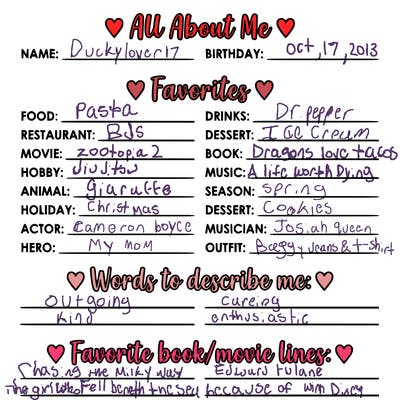 All About Me
NAME: Duckylover17 BIRTHDAY: oct,17,2013
Favorites
FOOD: Pasta DRINKS: Dr.pepper
RESTAURANT: BJs DESSERT: I CC Cream
MOVIE: zootopia 2 BOOK: Dragons love tacos
HOBBY: Jiujitsu MUSIC: A life worth Dying
ANIMAL: giaruffe SEASON: Spring
HOLIDAY: Christmas DESSERT: Cookies
ACTOR: Cameron boyce MUSICIAN: Josiah queen
HERO: My mom OUTFIT: Baggy Jeans & t-shirt
Words to describe me:
Outgoing careing
kind enthusiastic
Favorite book/movie lines:
Chasing the Milky way Edward tulane
The girl who Fell beneath the sea because of winn Dixey